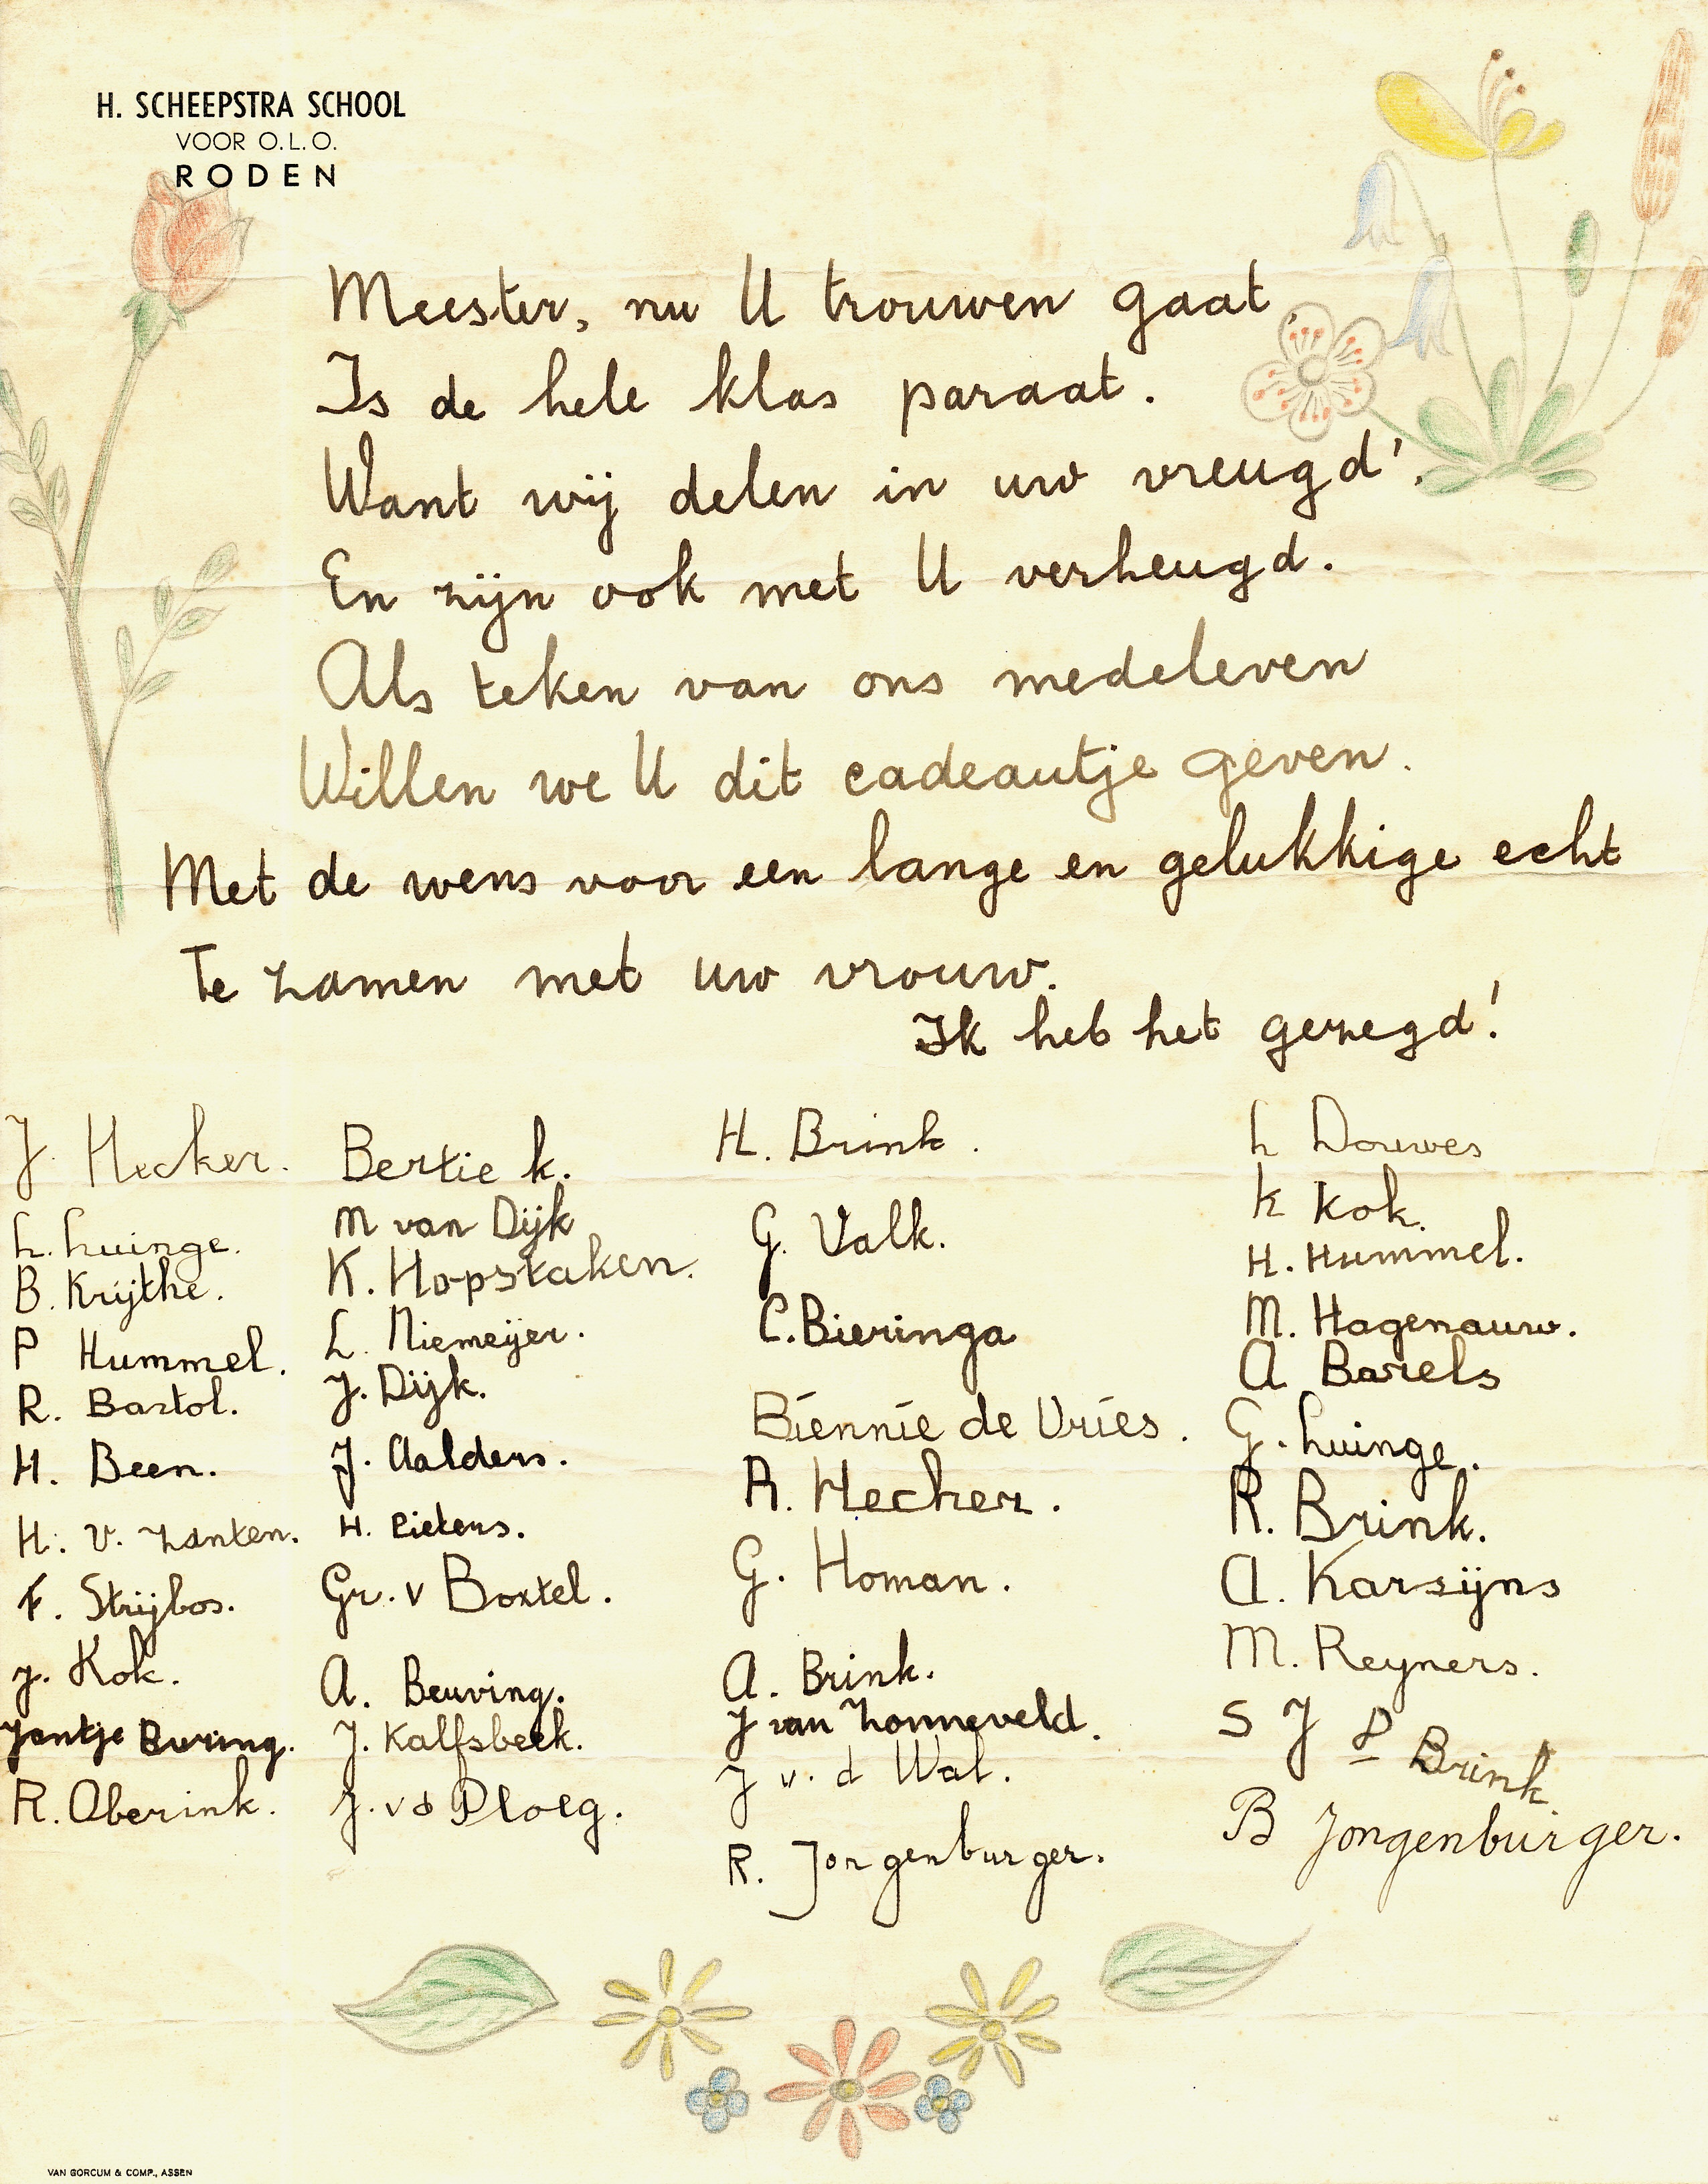 H. SCHEEPSTRA SCHOOL
VOOR O.L.O.
RODEN
Meester, nu U trouwen gaat,
Is de hele klas paraat.
Want wij delen in uw vreugd'.
En zijn ook met U verheugd.
Als teken van ons medeleven
Willen we U dit cadeautje geven.
Met de wens voor een lange en gelukkige echt
Te zamen met uw vrouw.
Ik heb het gezegd!
J. Hecker.
L. Luinge.
B. Krijthe.
P Hummel.
R. Bartol.
H. Been.
H. v. Zanten.
F. Strijbos.
J. Kok.
Jantje Buring.
R. Oberink.
Bertie k.
M van Dijk
K. Hopstaken.
L. Niemeijer.
J. Dijk.
J. Aalders.
H. Pieters.
Gr. v Boxtel.
A. Beuving.
J. Kalfsbeek.
J. v d Ploeg.
H. Brink.
G. Valk.
C. Bieringa
Biennie de Vries.
R. Hecker.
G. Homan.
A. Brink.
J van Zonneveld.
J v. d Wal.
R. Jongenburger.
L Douwes
K Kok.
H. Hummel.
M. Hagenauw.
A Barels
G. Luinge.
R. Brink.
A. Karsijns
M. Reyners.
S J Brink.
B Jongenburger.
VAN GORCUM & COMP., ASSEN